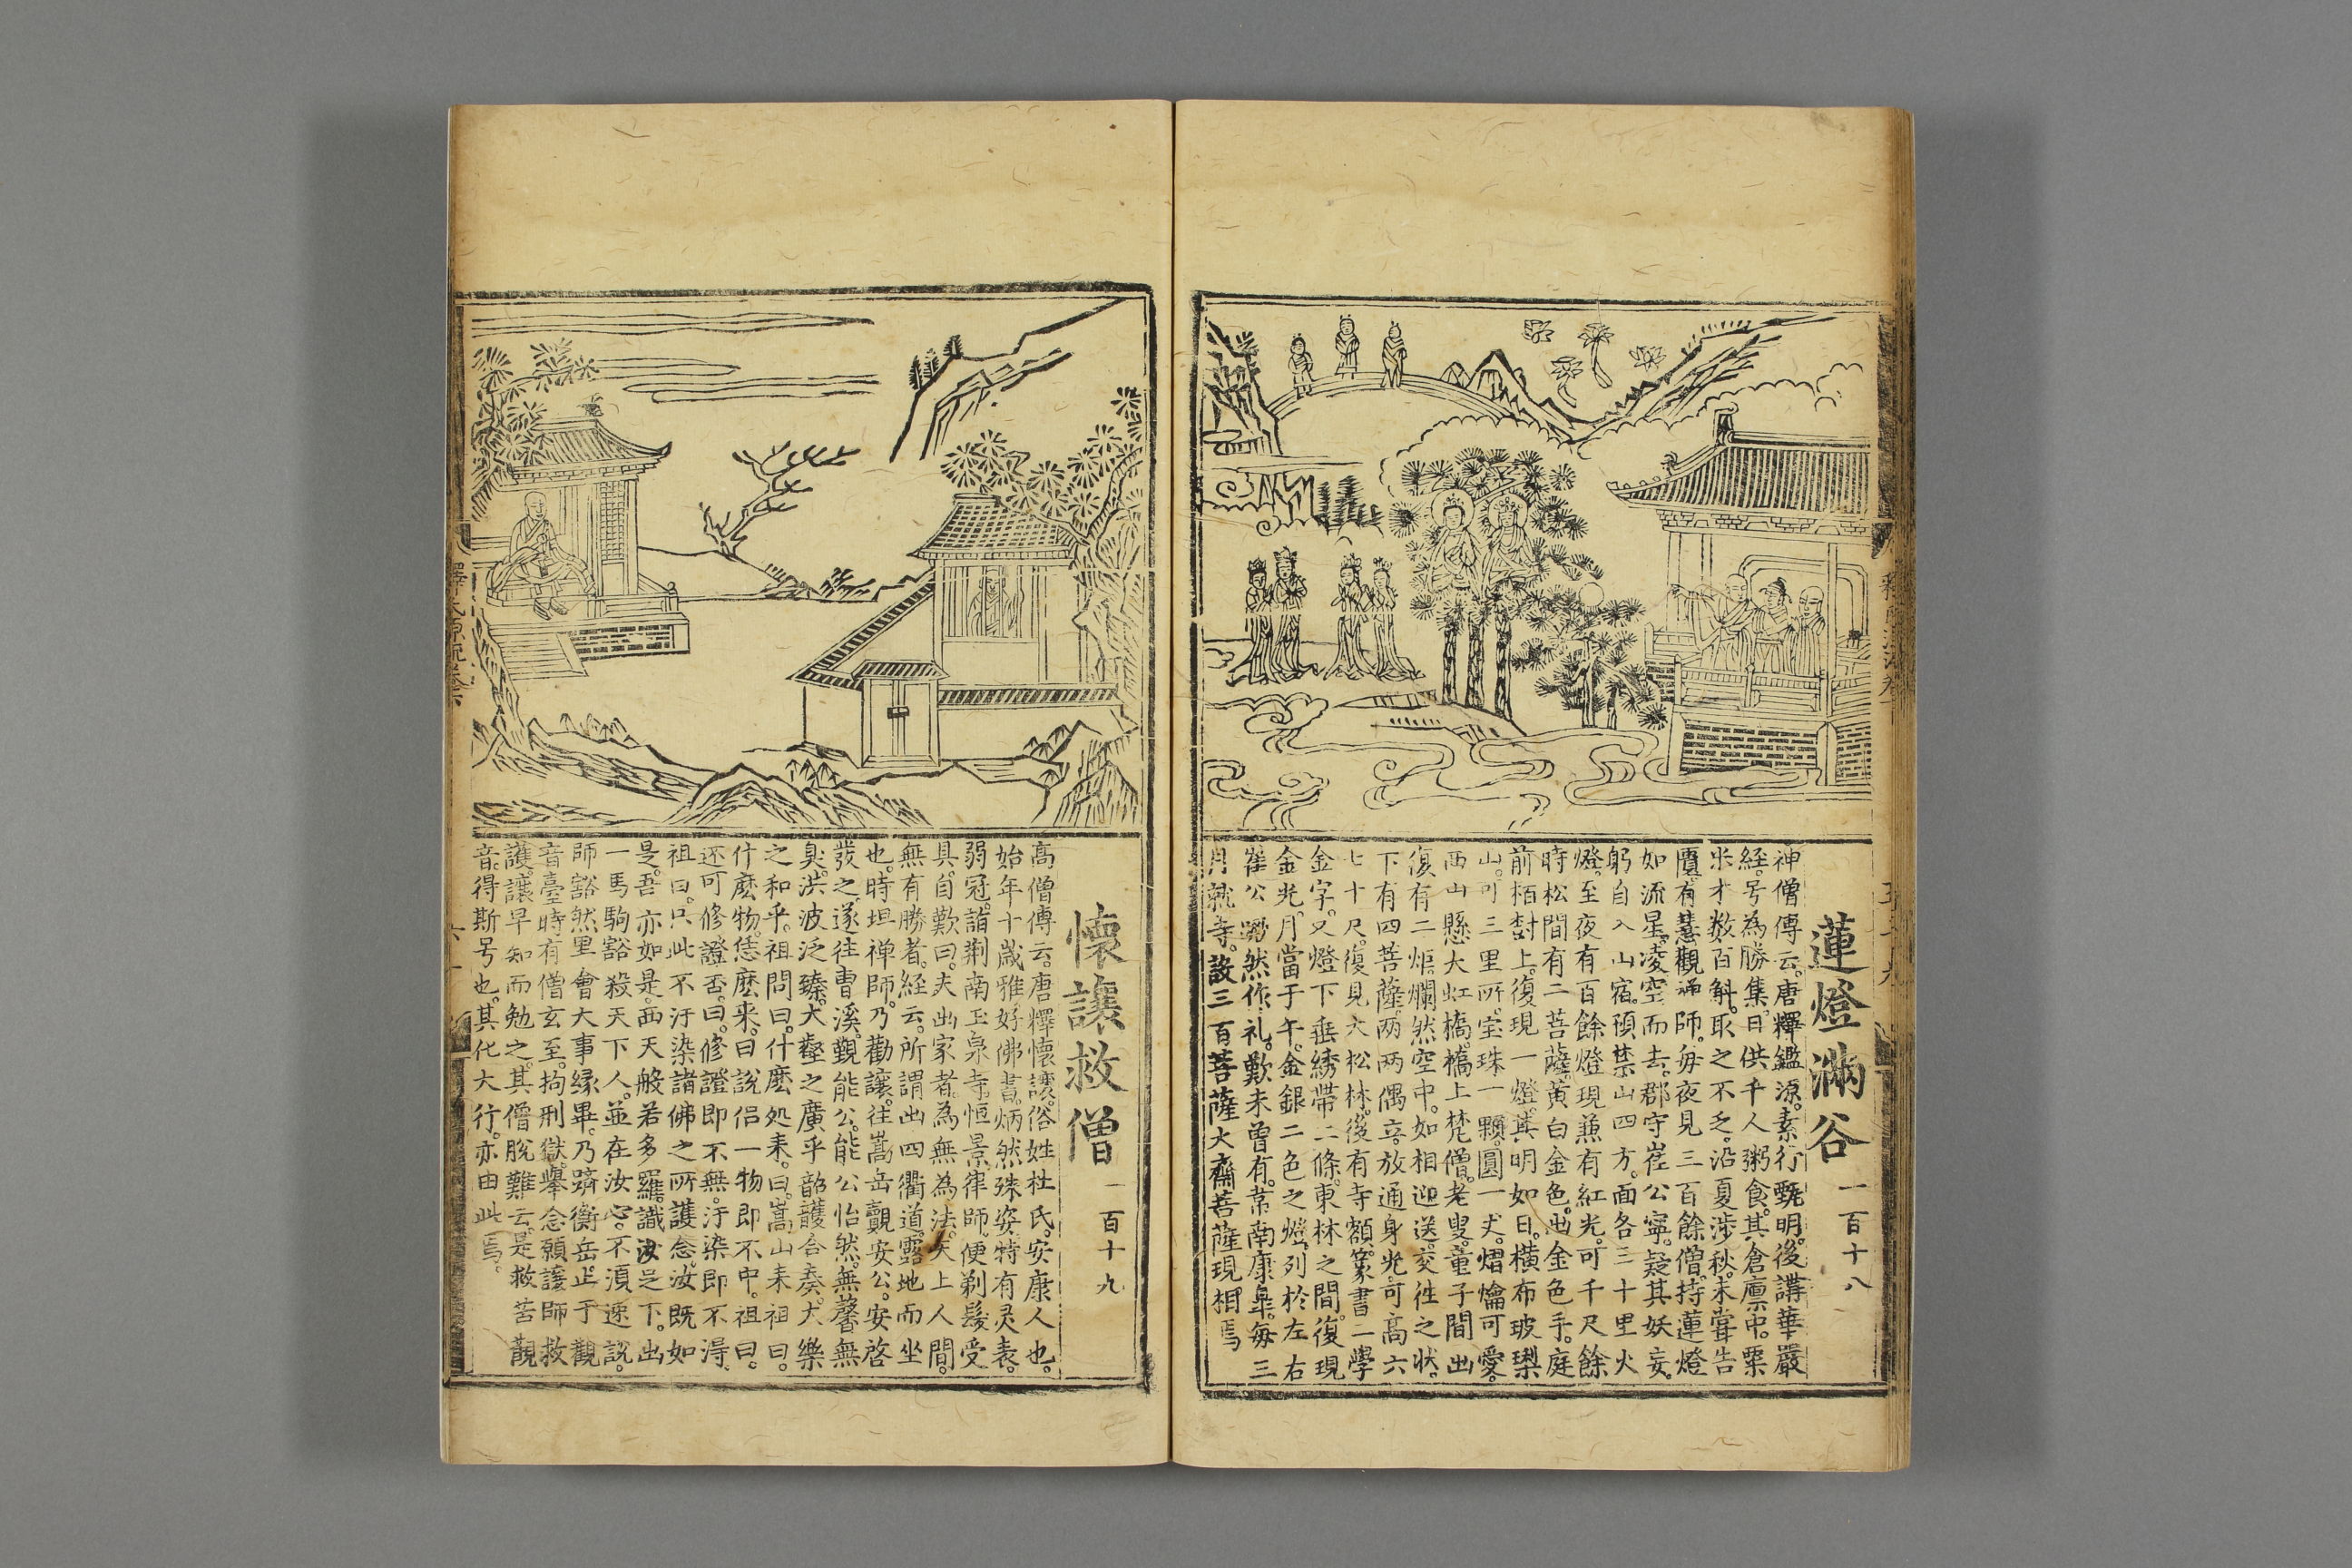 蓮燈滿谷 一百十八
神僧傳云。唐釋鑑源。素行甄明。後講華嚴
經。号為勝集。日供千人粥食。其倉廪中。粟
米才数百斛。取之不乏。沿夏涉秋。未甞告
匱。有慧觀禅師。毎夜見三百餘僧。持蓮燈
如流星。凌空而去。郡守崔公寧。疑其妖妄。
躬自入山宿。預禁山四方。面各三十里火
燈。至夜有百餘燈現兼有紅光。可千尺餘
時松間有二菩薩。黄白金色。出金色手。庭
前栢樹上。復現一燈。其明如日。橫布玻瓈
山。可三里所。宝珠一顆。圓一丈。熠爚可愛。
西山懸大虹橋。橋上梵僧。老叟。童子間出
復有二炬。爛然空中。如相迎送。交徃之状。
下有四菩薩。两两偶立。放通身光。可高六
七十尺。復見大松林。後有寺額。篆書二學
金字。又燈下垂綉帶二條。東林之間。復現
金光。月當于午。金銀二色之燈。列於左右
崔公 然作礼。歎未曽有。韋南康皐。毎三
月就寺。設三百菩薩大齋菩薩現相焉
懐讓救僧 一百十九
高僧傳云。唐釋懐讓。俗姓杜氏。安康人也。
始年十歲雅好佛書。炳然殊姿。特有灵表。
弱冠。詣荆南玉泉寺。恒景律師。便剃髮受
具。自歎曰。夫出家者。為無為法。天上人間。
無有勝者。経云。所謂出四衢道。露地而坐
也。時坦禅師。乃勸讓。往嵩岳覿安公。安啓
發之。遂往曹溪。覲能公。能公怡然。無馨無
臭。洪波泛臻。大壑之廣乎。韶頀合奏。大樂
之和乎。祖問曰。什麽処来。曰。嵩山来。祖曰。
什麽物。恁麽来。曰說侣一物即不中。祖曰。
还可修證否。曰。修證即不無。汙染即不得
祖曰。只此不汙染。諸佛之所護念。汝既如
是。吾亦如是。西天般若多羅。識汝足下。出
一馬駒。豁殺天下人。並在汝心。不須速說。
師豁然里會大事縁畢。乃躋衡岳。止于觀
音臺。時有僧玄至。拘刑獄。舉念願讓師救
護。讓早知而勉之。其僧脫難云。是救苦觀
音。得斯号也。其化大行。亦由此焉。